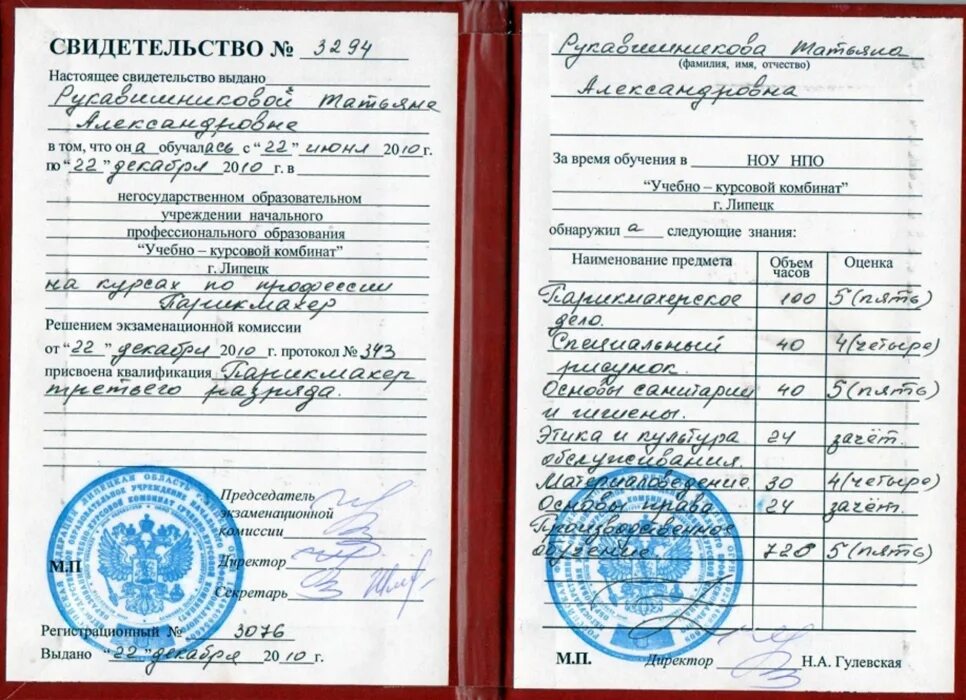 СВИДЕТЕЛЬСТВО № 3294
Настоящее свидетельство выдано
Рукавишниковой Татьяне
Александровне
в том, что она обучалась с "22" июня 2010 г.
по "22" декабря 2010 г. в
негосударственном образовательном
учреждении начального
профессионального образования
"Учебно – курсовой комбинат"
г. Липецк
на курсах по профессии
Парикмахер
Решением экзаменационной комиссии
от "22" декабря 2010 г. протокол № 343
присвоена квалификация Парикмахер
третьего разряда.
Председатель
экзаменационной
комиссии
М.П
Директор
Секретарь
Регистрационный № 3076
Выдано "22" декабря 2010 г.
Рукавишникова Татьяна
(фамилия, имя, отчество)
Александровна
За время обучения в НОУ НПО
"Учебно – курсовой комбинат"
г. Липецк
обнаружил а следующие знания:
Наименование предмета Объем часов Оценка
Парикмахерское 100 5 (пять)
дело.
Специальный 40 4 (четыре)
рисунок.
Основы санитарии 40 5 (пять)
и гигиены.
Этика и культура 24 зачёт.
обслуживания.
Материаловедение 30 4 (четыре)
Основы права 24 зачёт.
Производственное
обучение. 728 5 (пять)
М.П. Директор Н.А. Гулевская